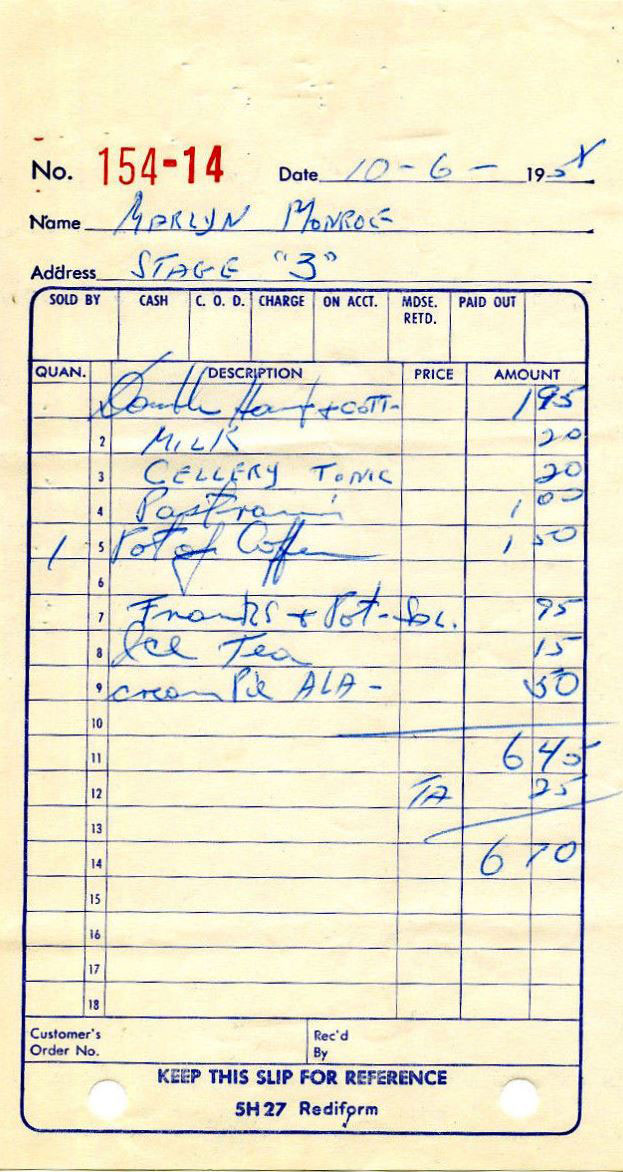 No. 154-14 Date 10-6- 195
Name MARLYN MONROE
Address STAGE "3"
SOLD BY CASH C. O. D. CHARGE ON ACCT. MDSE. RETD. PAID OUT
QUAN. DESCRIPTION PRICE AMOUNT
Double Ham + COTT- 1 95
2 MILK 20
3 CELLERY TONIC 20
4 Pastrami 1 00
1 5 Pot of Coffee 1 50
6
7 Franks + Pot-Sal. 95
8 Ice Tea 15
9 cream Pie ALA- 50
10
11 6 45
12 TA 25
13
14 6 70
15
16
17
18
Customer's Order No. Rec'd By
KEEP THIS SLIP FOR REFERENCE
5H27 Rediform